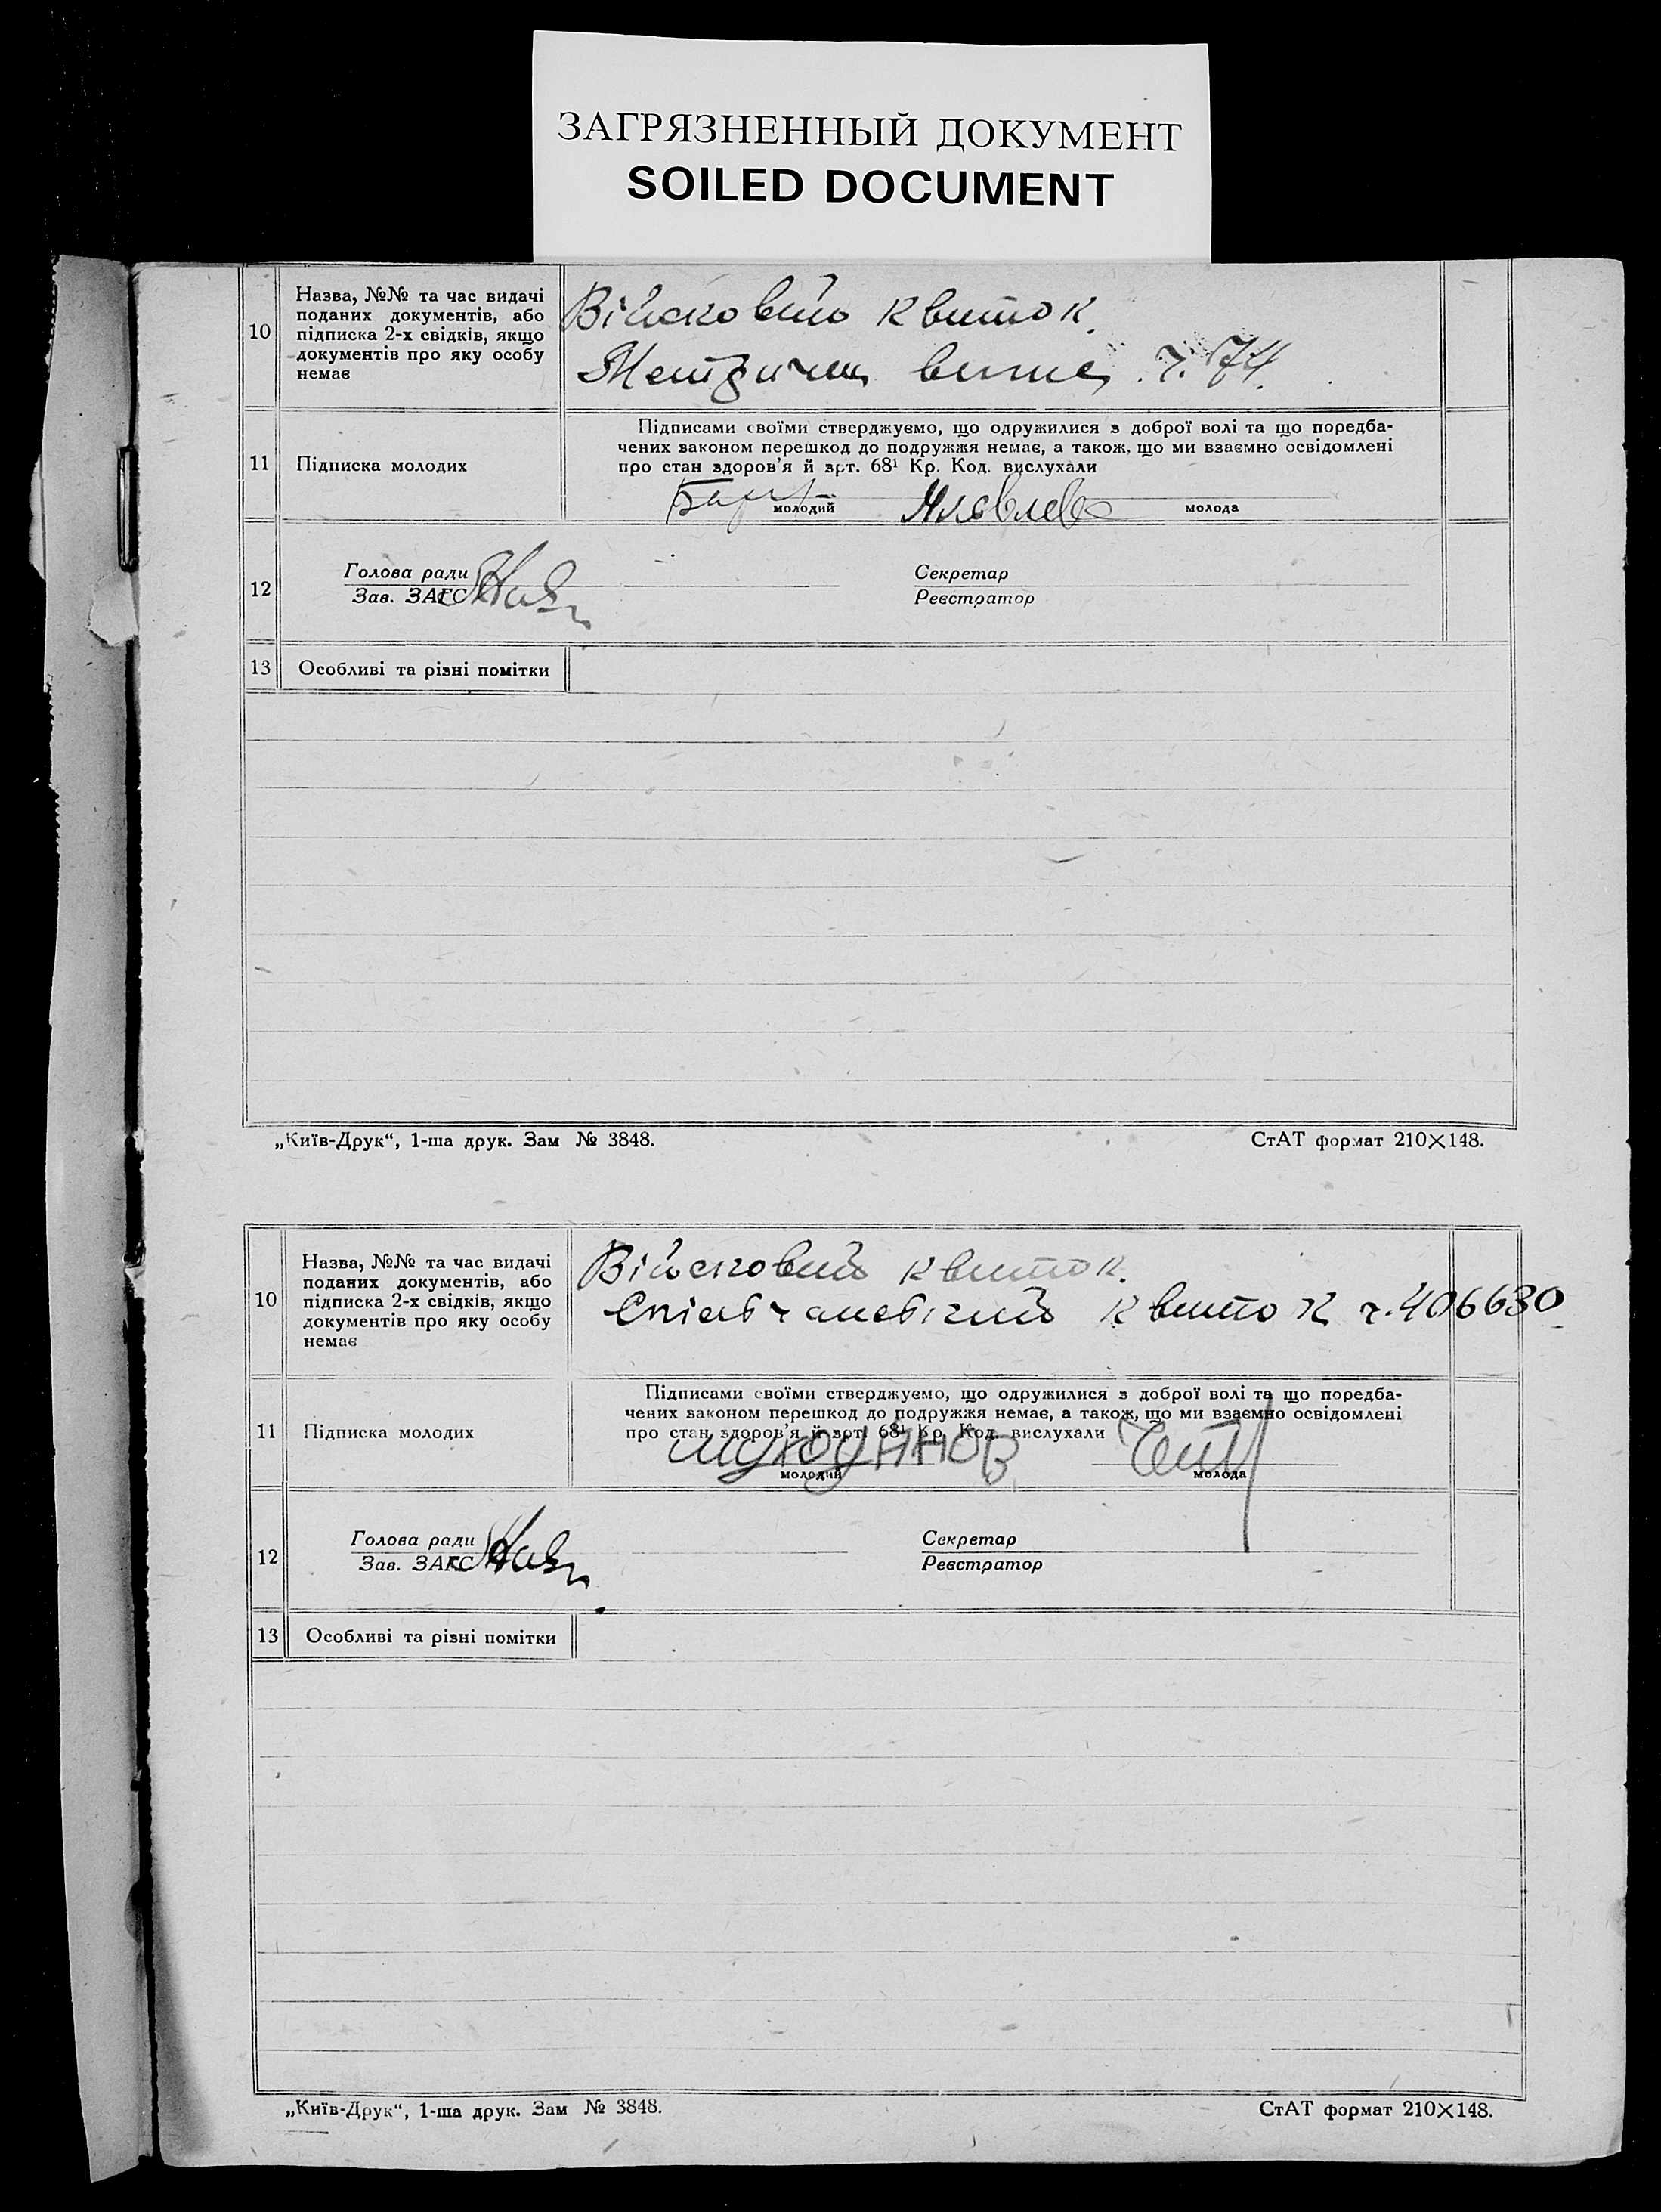 ЗАГРЯЗНЕННЫЙ ДОКУМЕНТ
SOILED DOCUMENT
10
Назва, №№ та час видачі
поданих документів, або
підписка 2-х свідків, якщо
документів про яку особу
немає
Військовий квиток.
ч. 74.
11
Підписка молодих
Підписами своїми стверджуємо, що одружилися з доброї волі та що поредба-
чених законом перешкод до подружжя немає, а також, що ми взаємно освідомлені
про стан здоров'я й арт. 68¹ Кр. Код. вислухали
молодий
молода
12
Голова ради
Зав. ЗАГС
Секретар
Реєстратор
13
Особливі та різні помітки
„Київ-Друк“, 1-ша друк. Зам № 3848.
СтАТ формат 210×148.
10
Назва, №№ та час видачі
поданих документів, або
підписка 2-х свідків, якщо
документів про яку особу
немає
Військовий квиток.
квиток ч. 406630
11
Підписка молодих
Підписами своїми стверджуємо, що одружилися з доброї волі та що поредба-
чених законом перешкод до подружжя немає, а також, що ми взаємно освідомлені
про стан здоров'я й арт. 68¹ Кр. Код. вислухали
молодий
молода
12
Голова ради
Зав. ЗАГС
Секретар
Реєстратор
13
Особливі та різні помітки
„Київ-Друк“, 1-ша друк. Зам № 3848.
СтАТ формат 210×148.